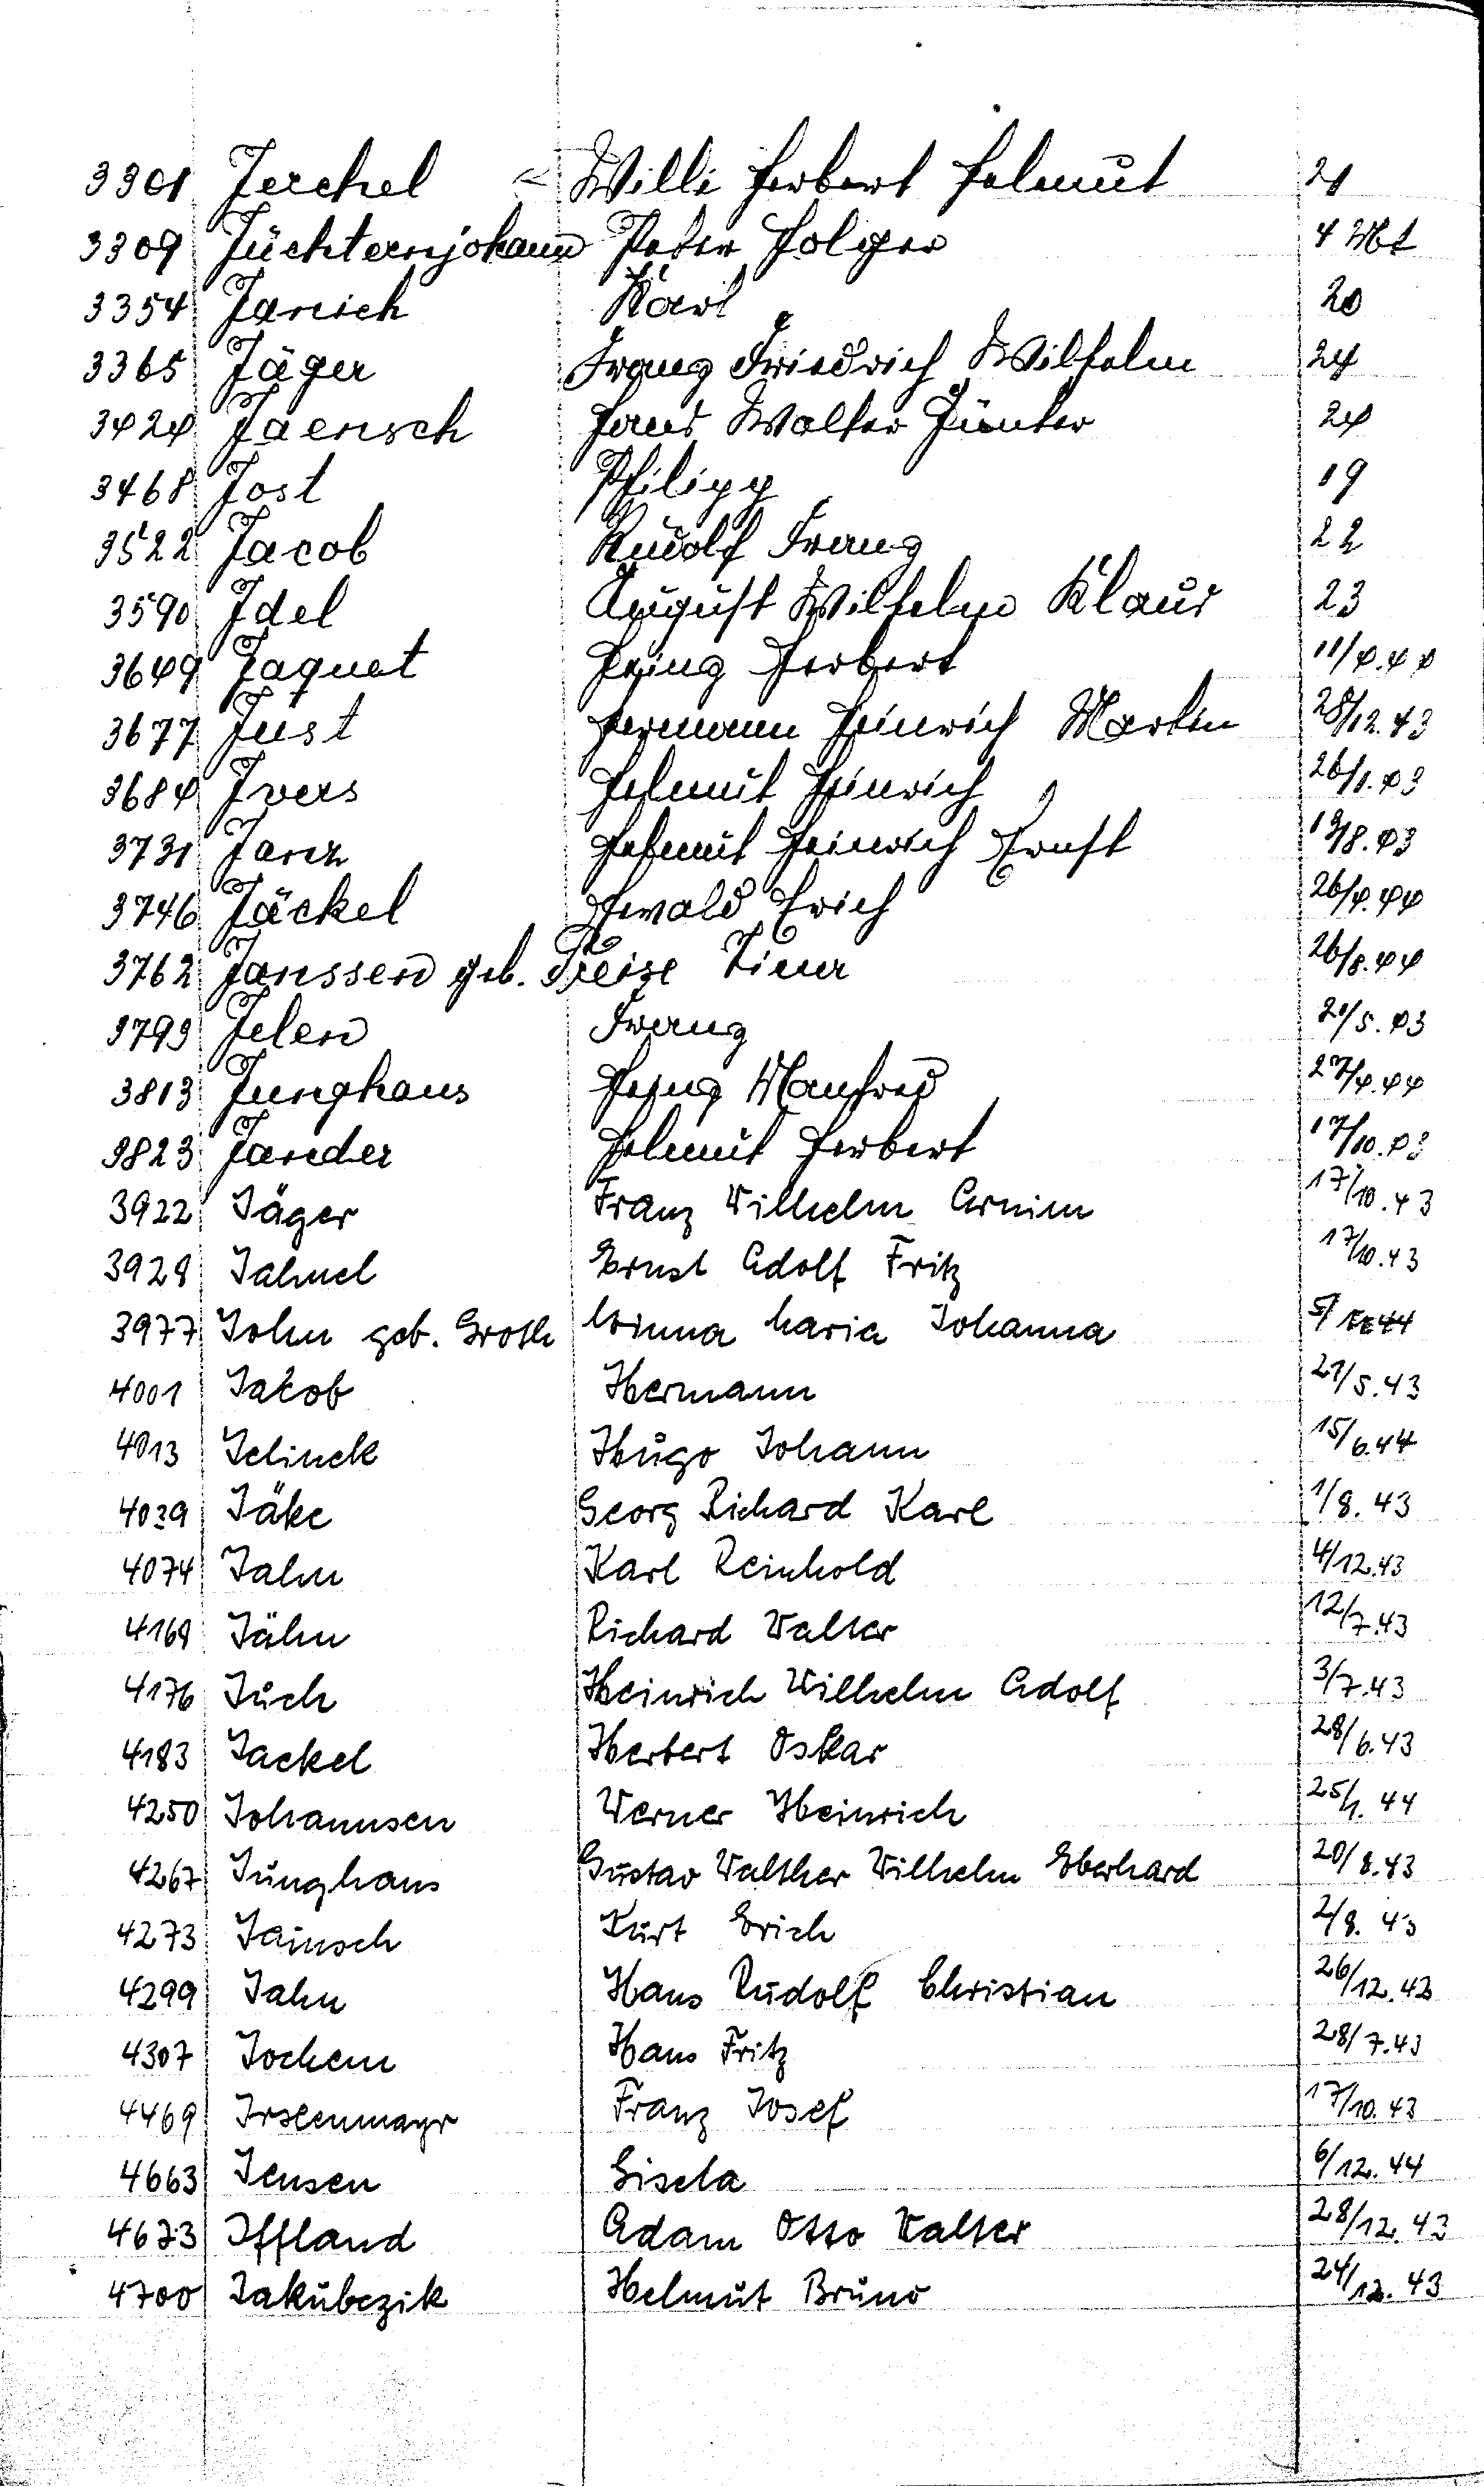 3301 Jerchel Willi Herbert Helmut 21
3309 Jüchternjohann Peter Holger 4 Mt
3354 Janich Karl 20
3365 Jäger Franz Friedrich Wilhelm 24
3424 Jaensch Hans Walter Günter 24
3468 Jost Philipp 19
3522 Jacob Rudolf Franz 22
3590 Idel August Wilhelm Klaus 23
3649 Jaquet Heinz Herbert 11/4.44
3677 Just Hermann Heinrich Martin 28/12.43
3684 Ivers Helmut Heinrich 26/1.43
3731 Janz Helmut Heinrich Ernst 13/8.43
3746 Jäckel Ewald Erich 26/4.44
3762 Janssen geb. Preise 26/8.44
3793 Jelen Franz 21/5.43
3813 Junghaus Heinz Manfred 27/4.44
3823 Jander Helmut Herbert 17/10.43
3922 Jäger Franz Wilhelm Armin 17/10.43
3928 Jahnel Ernst Adolf Fritz 17/10.43
3977 John geb. Groth Minna Maria Johanna 5/
4001 Jakob Hermann 21/5.43
4013 Jelinek Hugo Johann 15/6.44
4039 Jäke Georg Richard Karl 1/8.43
4074 Jahn Karl Reinhold 4/12.43
4168 Jähn Richard Walter 12/7.43
4176 Juch Heinrich Wilhelm Adolf 3/7.43
4183 Jackel Herbert Oskar 28/6.43
4250 Johannsen Werner Heinrich 25/1.44
4267 Junghans Gustav Walther Wilhelm Eberhard 20/8.43
4273 Jainsch Kurt Erich 2/8.43
4299 Jahn Hans Rudolf Christian 26/12.43
4307 Jochem Hans Fritz 28/7.43
4469 Irslenmayr Franz Josef 17/10.43
4663 Jensen Gisela 6/12.44
4673 Iffland Adam Otto Walter 28/12.43
4700 Jakubczik Helmut Bruno 24/12.43